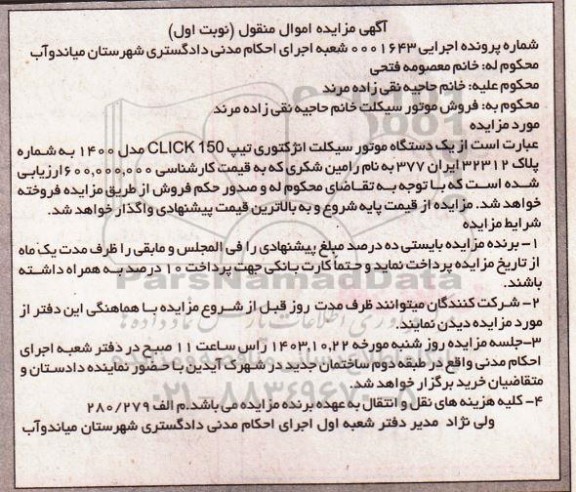 آگهی مزایده اموال منقول (نوبت اول)
شماره پرونده اجرایی ۰۰۰۱۶۴۳ شعبه اجرای احکام مدنی دادگستری شهرستان میاندوآب
محکوم له: خانم معصومه فتحی
محکوم علیه: خانم حاجیه نقی زاده مرند
محکوم به: فروش موتور سیکلت خانم حاجیه نقی زاده مرند
مورد مزایده
عبارت است از یک دستگاه موتور سیکلت انژکتوری تیپ CLICK 150 مدل ۱۴۰۰ به شماره
پلاک ۳۲۳۱۲ ایران ۳۷۷ به نام رامین شکری که به قیمت کارشناسی ۶۰۰,۰۰۰,۰۰۰ ارزیابی
شده است که با توجه به تقاضای محکوم له و صدور حکم فروش از طریق مزایده فروخته
خواهد شد. مزایده از قیمت پایه شروع و به بالاترین قیمت پیشنهادی واگذار خواهد شد.
شرایط مزایده
۱- برنده مزایده بایستی ده درصد مبلغ پیشنهادی را فی المجلس و مابقی را ظرف مدت یک ماه
از تاریخ مزایده پرداخت نماید و حتماً کارت بانکی جهت پرداخت ۱۰ درصد به همراه داشته
باشند.
۲- شرکت کنندگان میتوانند ظرف مدت روز قبل از شروع مزایده با هماهنگی این دفتر از
مورد مزایده دیدن نمایند.
۳-جلسه مزایده روز شنبه مورخه ۱۴۰۳,۱۰,۲۲ راس ساعت ۱۱ صبح در دفتر شعبه اجرای
احکام مدنی واقع در طبقه دوم ساختمان جدید در شهرک آیدین با حضور نماینده دادستان و
متقاضیان خرید برگزار خواهد شد.
۴- کلیه هزینه های نقل و انتقال به عهده برنده مزایده می باشد. م الف ۲۸۰/۲۷۹
ولی نژاد مدیر دفتر شعبه اول اجرای احکام مدنی دادگستری شهرستان میاندوآب
ParsNamadData
۰۲۱-۸۸۳۴۹۶۷۰